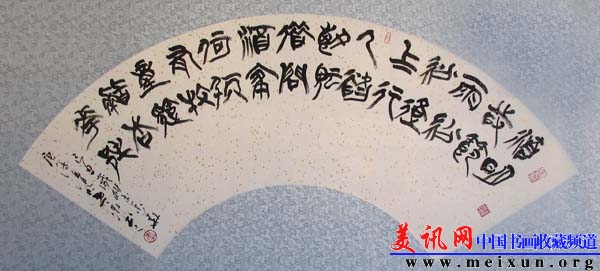 清明
時節
雨紛
紛道
上行
人欲
斷魂
借問
酒家
何處
有牧
童遙
指杏
花村
美讯网 中国书画收藏频道
www.meixun.org